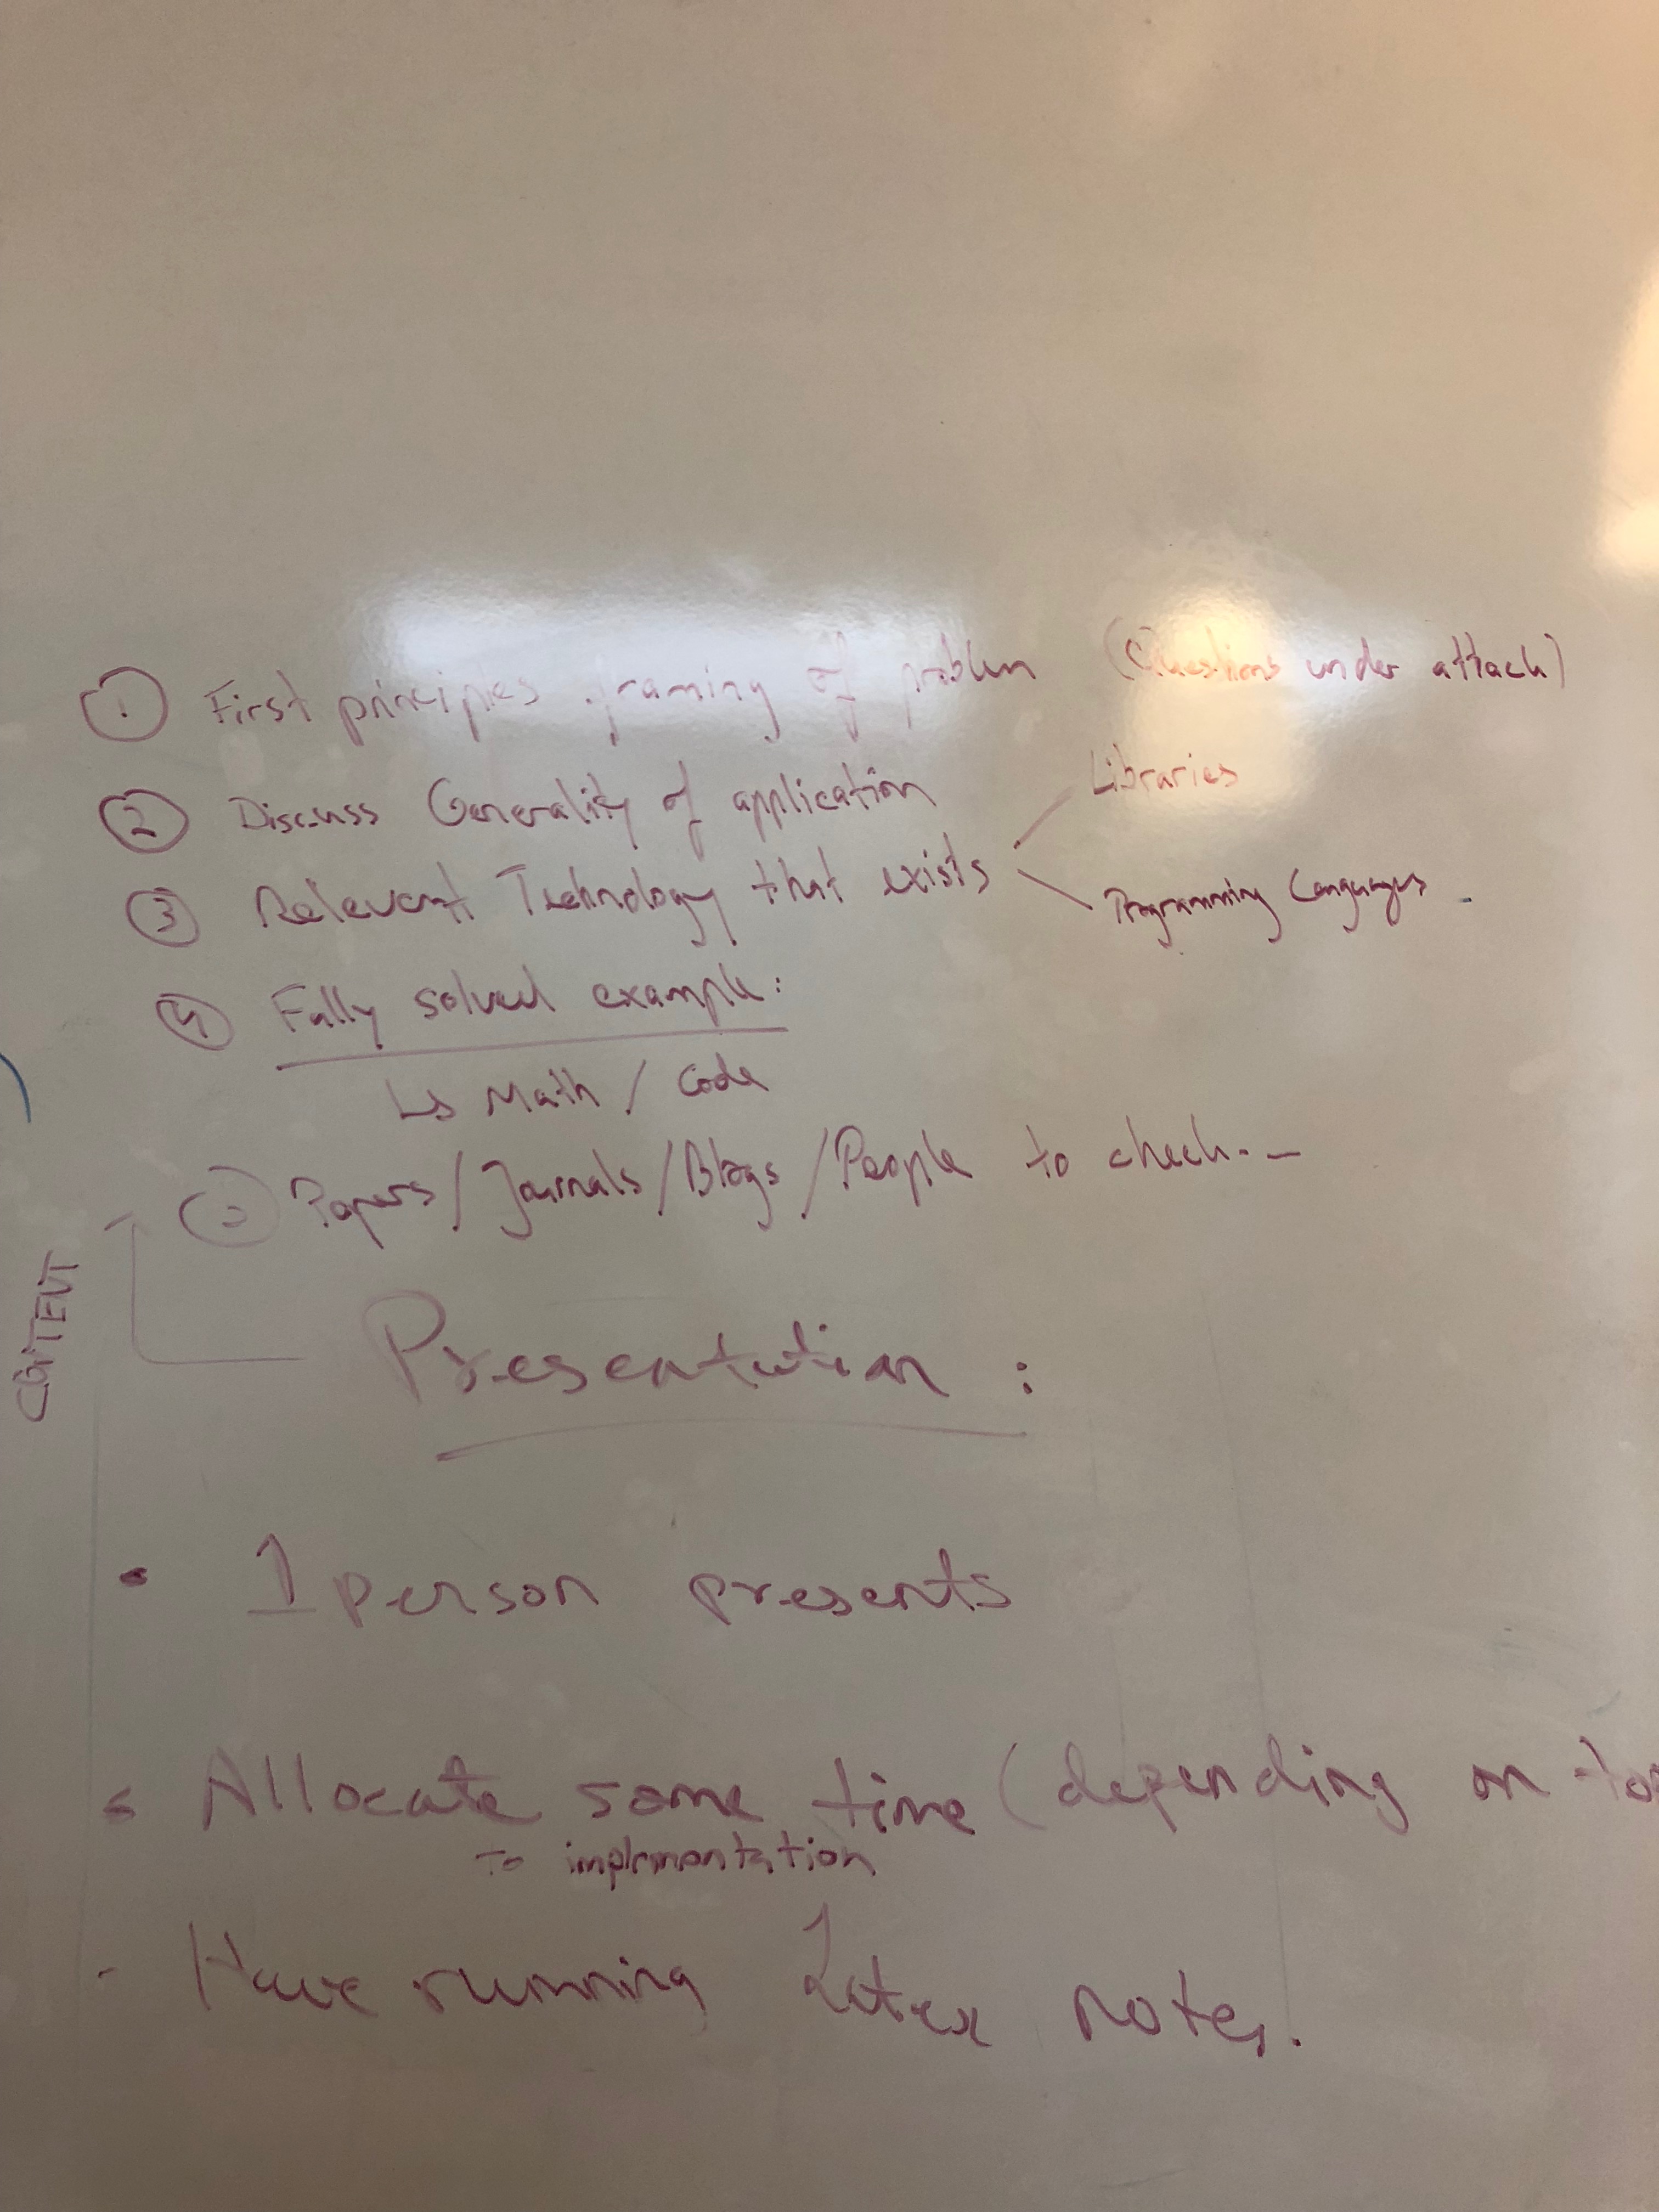 ① First principles framing of problem (Questions under attack)
② Discuss Generality of application
Libraries
③ Relevant Technology that exists
Programming Languages.
④ Fully solved example:
↳ Math / Code
Papers / Journals / Blogs / People to check..-
CONTENT
Presentation :
• 1 person presents
• Allocate some time (depending on
To implementation
- Have running Latex notes.